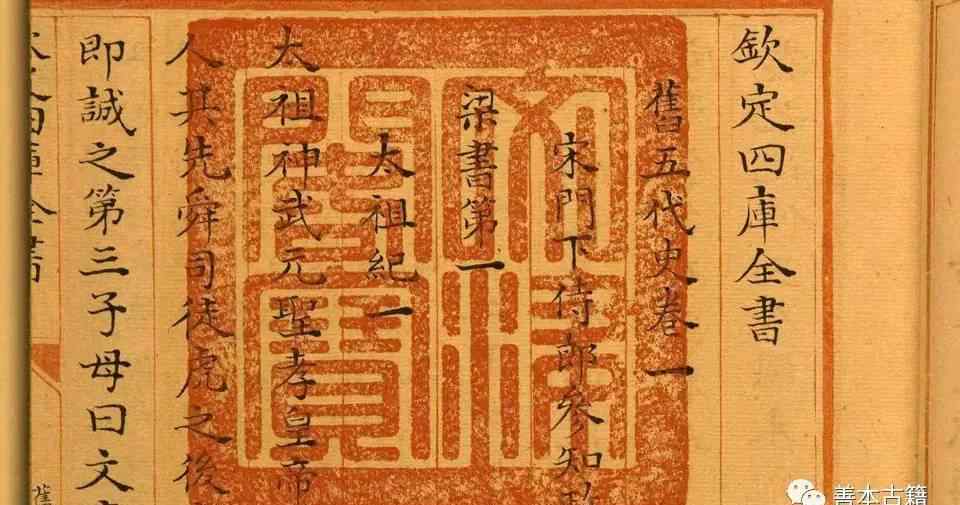 欽定四庫全書
舊五代史卷一
宋門下侍郎參知
梁書第一
太祖紀一
太祖神武元聖孝皇帝
人其先舜司徒虎之後
即誠之第三子母曰文
四庫全書
舊
善本古籍